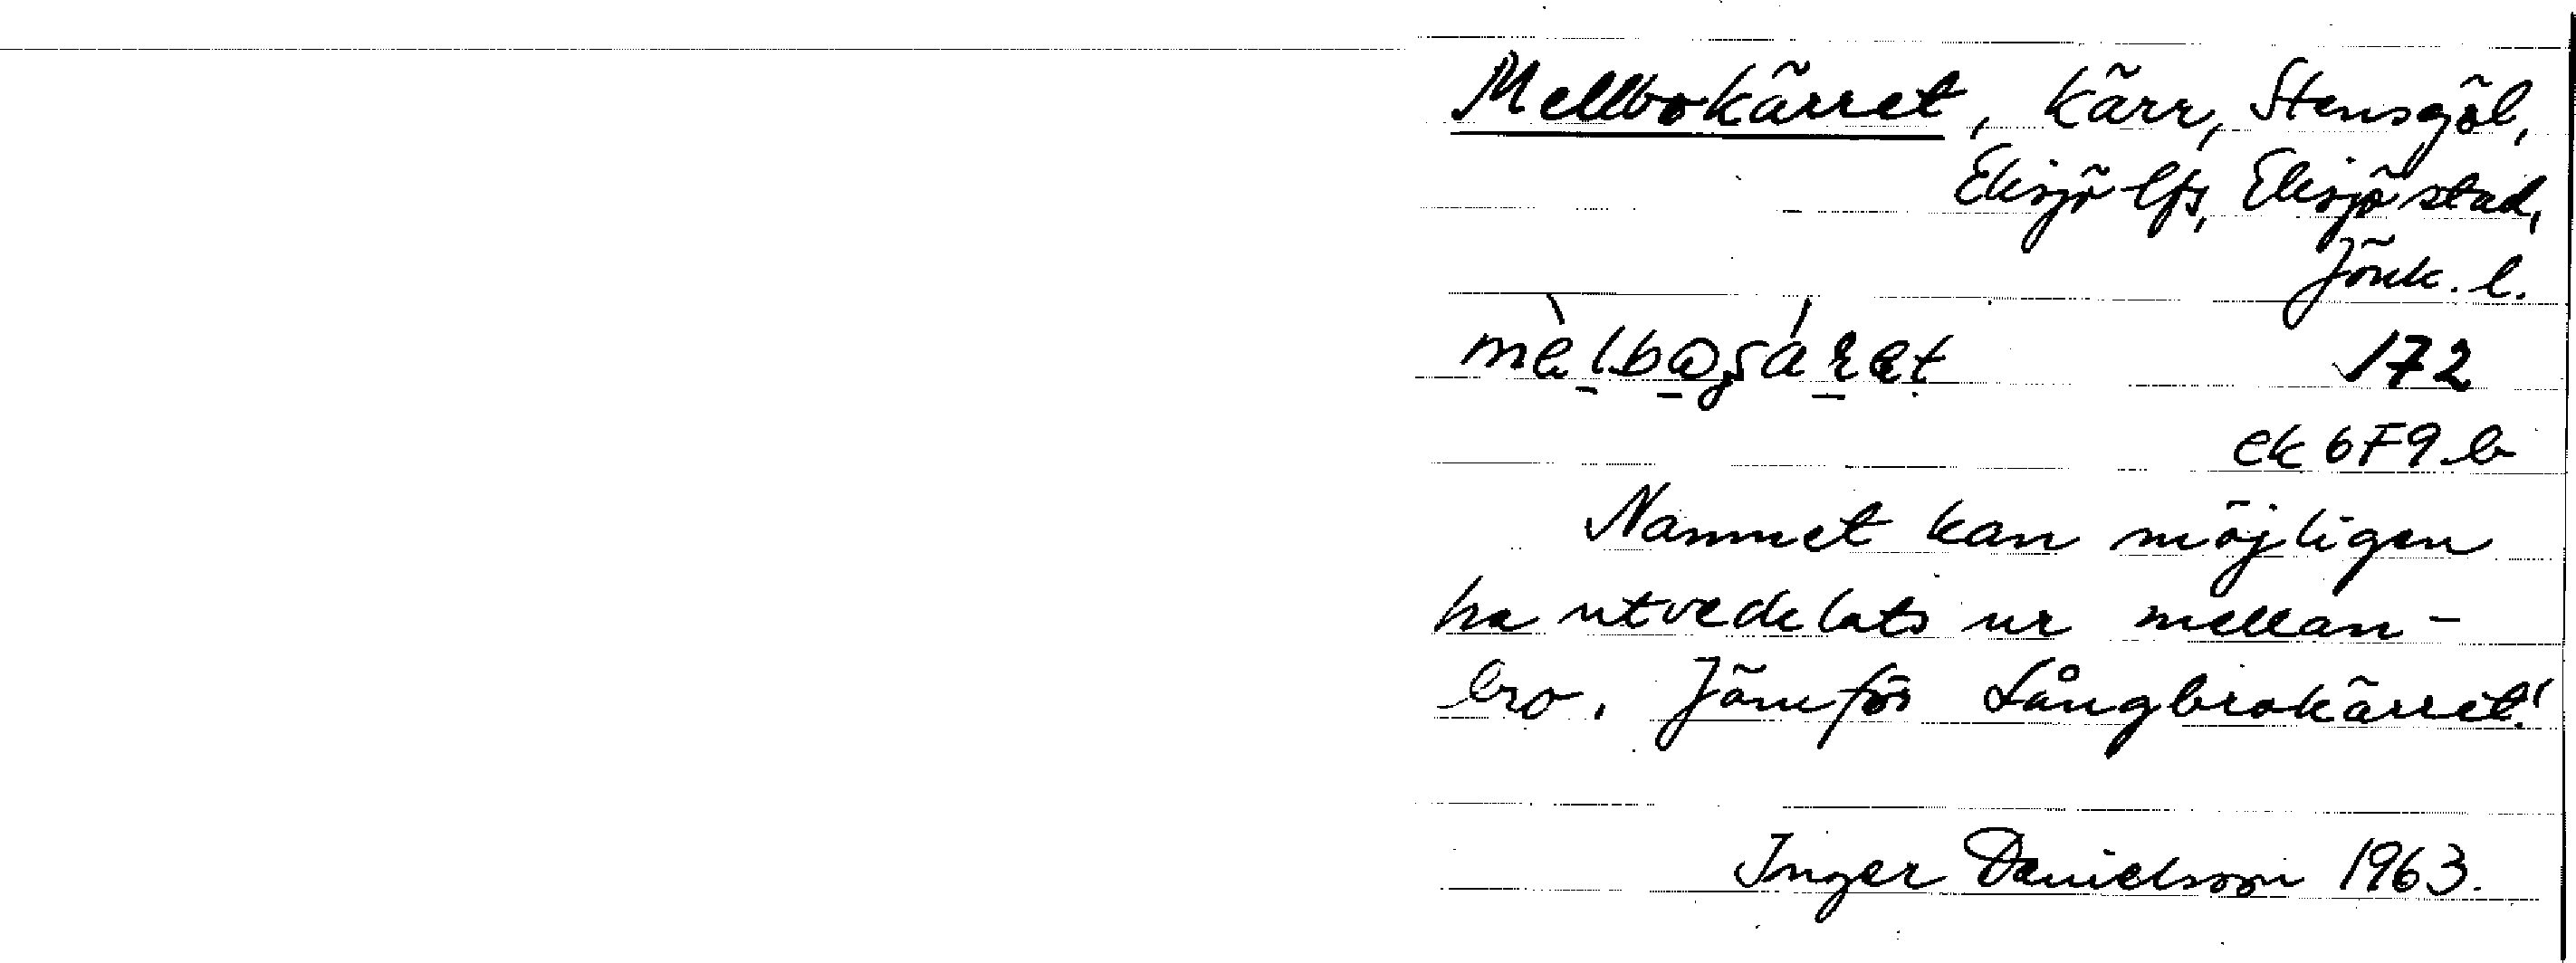 Mellbokärret, kärr, Stensgöl,
Eksjö lfs, Eksjö stad,
Jönk. l.
172
ek 6F9b
Namnet kan möjligen
ha utvecklats ur mellan-
bro. Jämför Långbrokärret!
Inger Danielsson 1963.